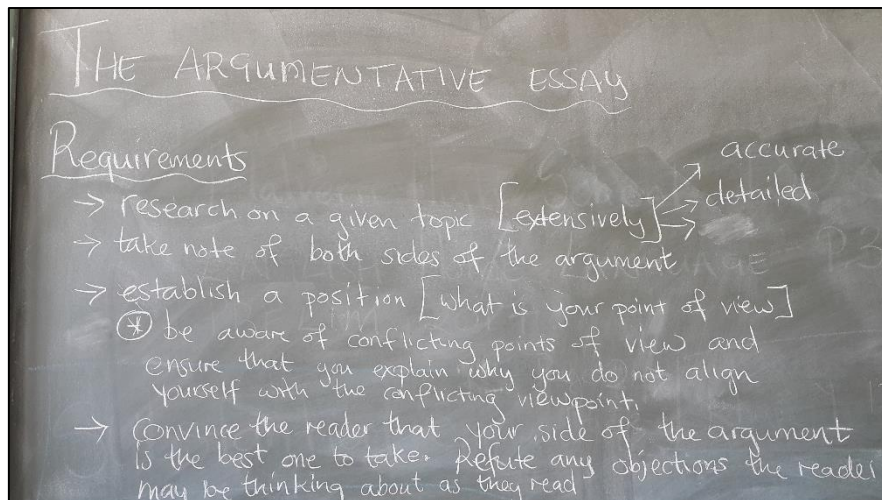 THE ARGUMENTATIVE ESSAY
Requirements
accurate
→ research on a given topic [extensively] → detailed
→ take note of both sides of the argument
→ establish a position [what is your point of view]
* be aware of conflicting points of view and
ensure that you explain why you do not align
yourself with the conflicting viewpoint.
→ Convince the reader that your side of the argument
is the best one to take. Refute any objections the reader
may be thinking about as they read